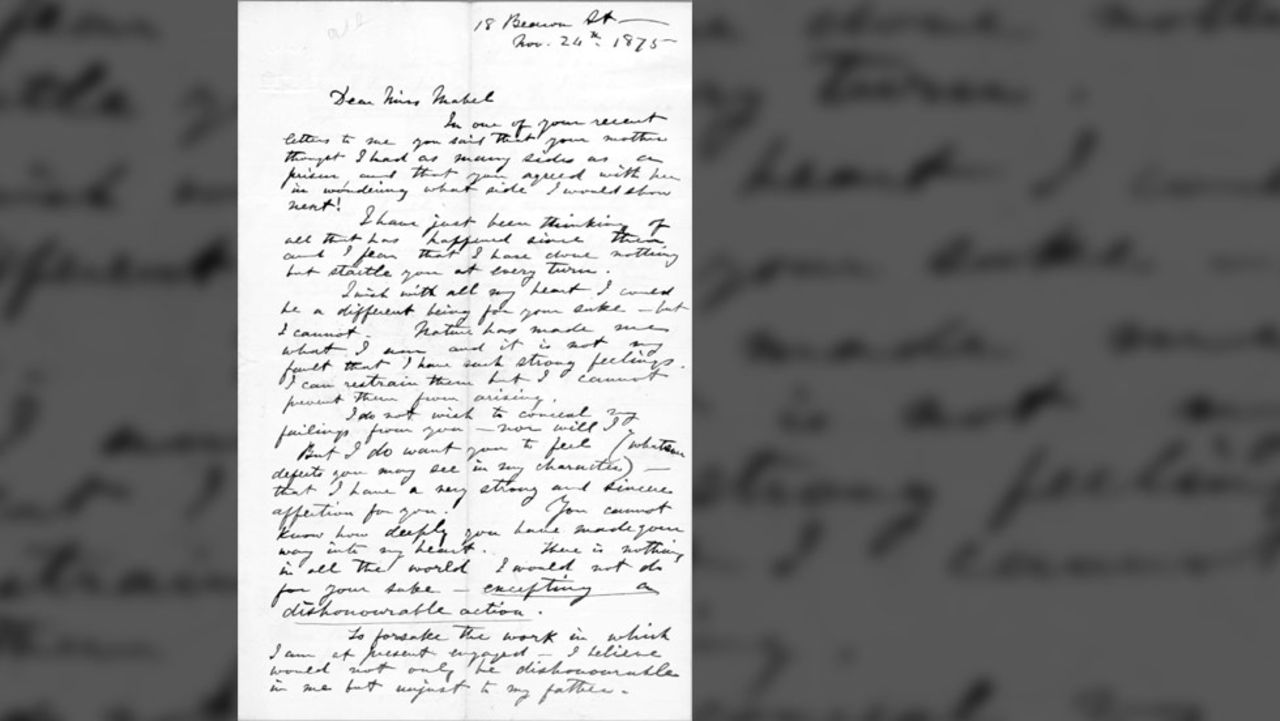 18 Beacon St —
Nov. 24th. 1875 —
Dear Miss Mabel
In one of your recent
letters to me you said that your mother
thought I had as many sides as a
prism and that you agreed with her
in wondering what side I would show
next!
I have just been thinking of
all that has happened since then
and I fear that I have done nothing
but startle you at every turn.
I wish with all my heart I could
be a different being for your sake — but
I cannot. Nature has made me
what I am and it is not my
fault that I have such strong feelings.
I can restrain them but I cannot
prevent them from arising.
I do not wish to conceal my
failings from you — nor will I.
But I do want you to feel (whatever
defects you may see in my character) —
that I have a very strong and sincere
affection for you. You cannot
know how deeply you have made your
way into my heart. There is nothing
in all the world I would not do
for your sake — excepting a
dishonourable action.
To forsake the work in which
I am at present engaged — I believe
would not only be dishonourable
in me but unjust to my father.